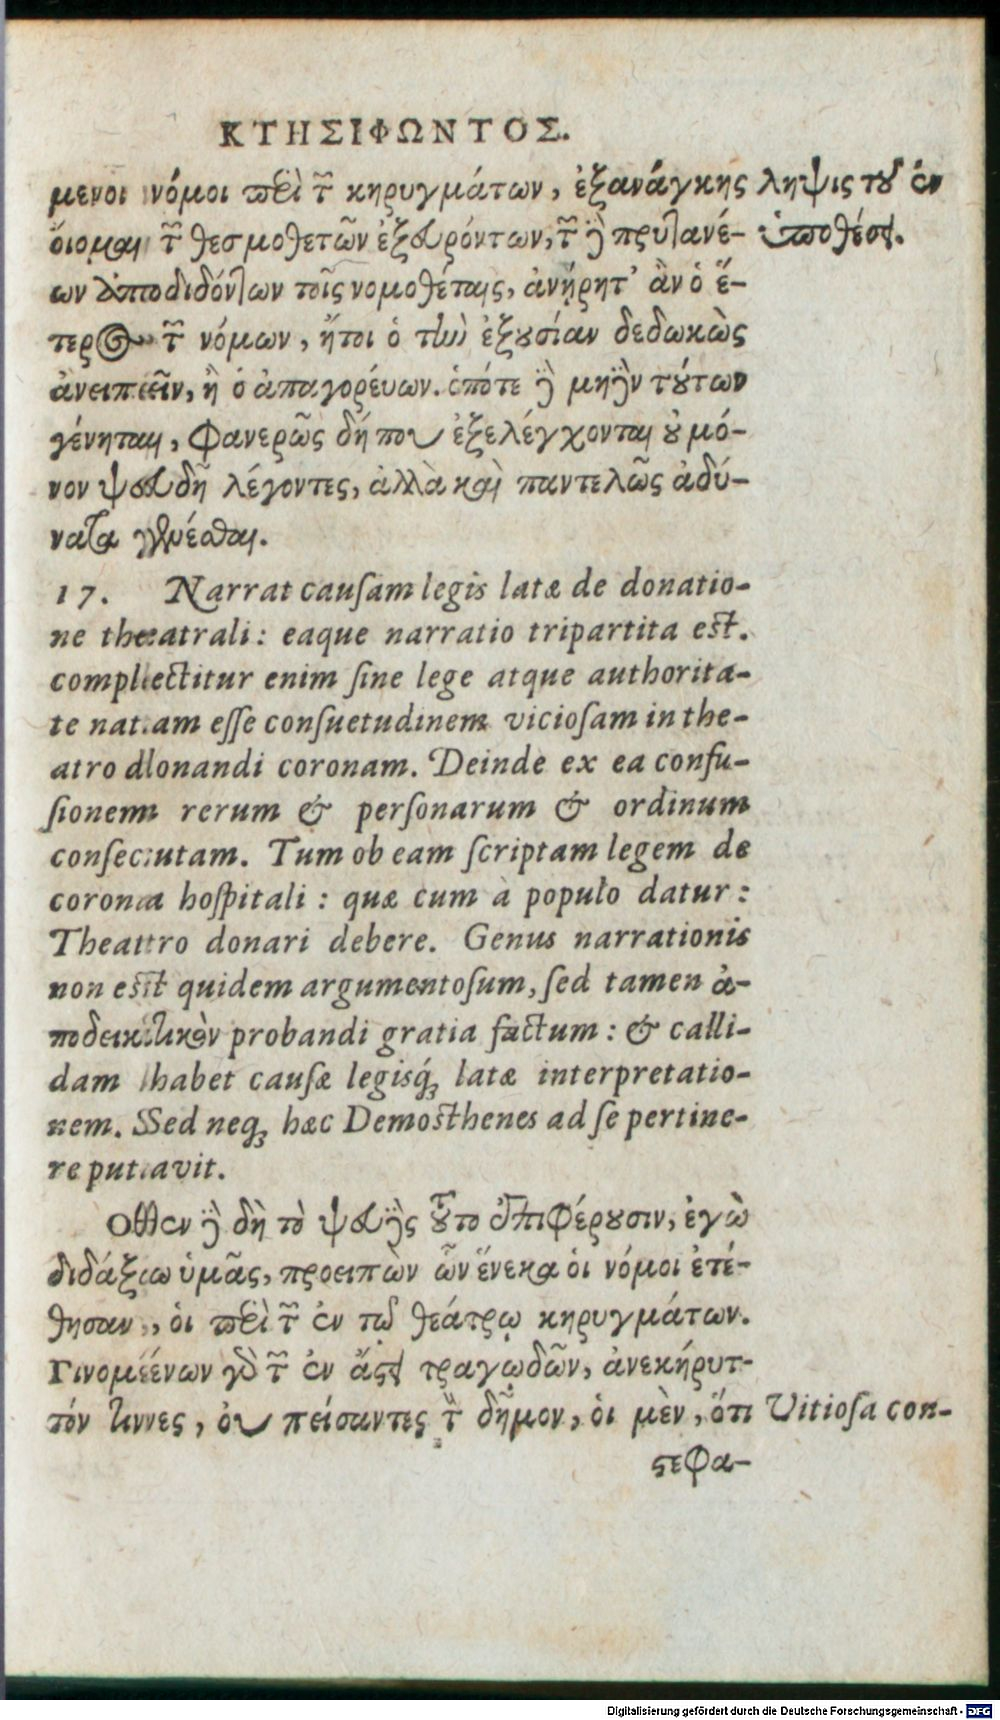 ΚΤΗΣΙΦΩΝΤΟΣ.
μενοι νόμοι περὶ τῶν κηρυγμάτων, ἐξανάγκης
ληψις τοῦ ἐν
ὄιομαι τῶν θεσμοθετῶν ἐξευρόντων, τῶν δὲ πρυτανέ-
ὑποθέσει.
ων ἀποδιδόντων τοῖς νομοθέταις, ἀνῄρητ' ἂν ὁ ἕ-
τερος τῶν νόμων, ἤτοι ὁ τὴν ἐξουσίαν δεδωκὼς
ἀνειπεῖν, ἢ ὁ ἀπαγορέυων. ὁπότε δὲ μηδὲν τούτων
γένηται, φανερῶς δή που ἐξελέγχονται οὐ μό-
νον ψευδῆ λέγοντες, ἀλλὰ καὶ παντελῶς ἀδύ-
νατα γενέσθαι.
17. Narrat cauſam legis latæ de donatio-
ne theatrali: eaque narratio tripartita est.
complectitur enim ſine lege atque authorita-
te natam eſſe conſuetudinem vicioſam in the-
atro donandi coronam. Deinde ex ea confu-
ſionem rerum & perſonarum & ordinum
conſecutam. Tum ob eam ſcriptam legem de
corona hoſpitali: quæ cum à populo datur:
Theatro donari debere. Genus narrationis
non est quidem argumentoſum, ſed tamen ἀ-
ποδεικτικὸν probandi gratia factum: & calli-
dam habet cauſæ legisq́; latæ interpretatio-
nem. Sed neq; hæc Demosthenes ad ſe pertine-
re putavit.
Οθεν δὲ δὴ τὸ ψεῦδος τοῦτο ἐπιφέρουσιν, ἐγὼ
διδάξω ὑμᾶς, προειπὼν ὧν ἕνεκα οἱ νόμοι ἐτέ-
θησαν, οἱ περὶ τῶν ἐν τῷ θεάτρῳ κηρυγμάτων.
Γινομένων γὰρ τῶν ἐν ἄστει τραγῳδῶν, ἀνεκήρυτ-
τόν τινες, οὐ πείσαντες τὸν δῆμον, οἱ μὲν, ὅτι
Vitioſa con-
στεφα-
Digitalisierung gefördert durch die Deutsche Forschungsgemeinschaft - DFG